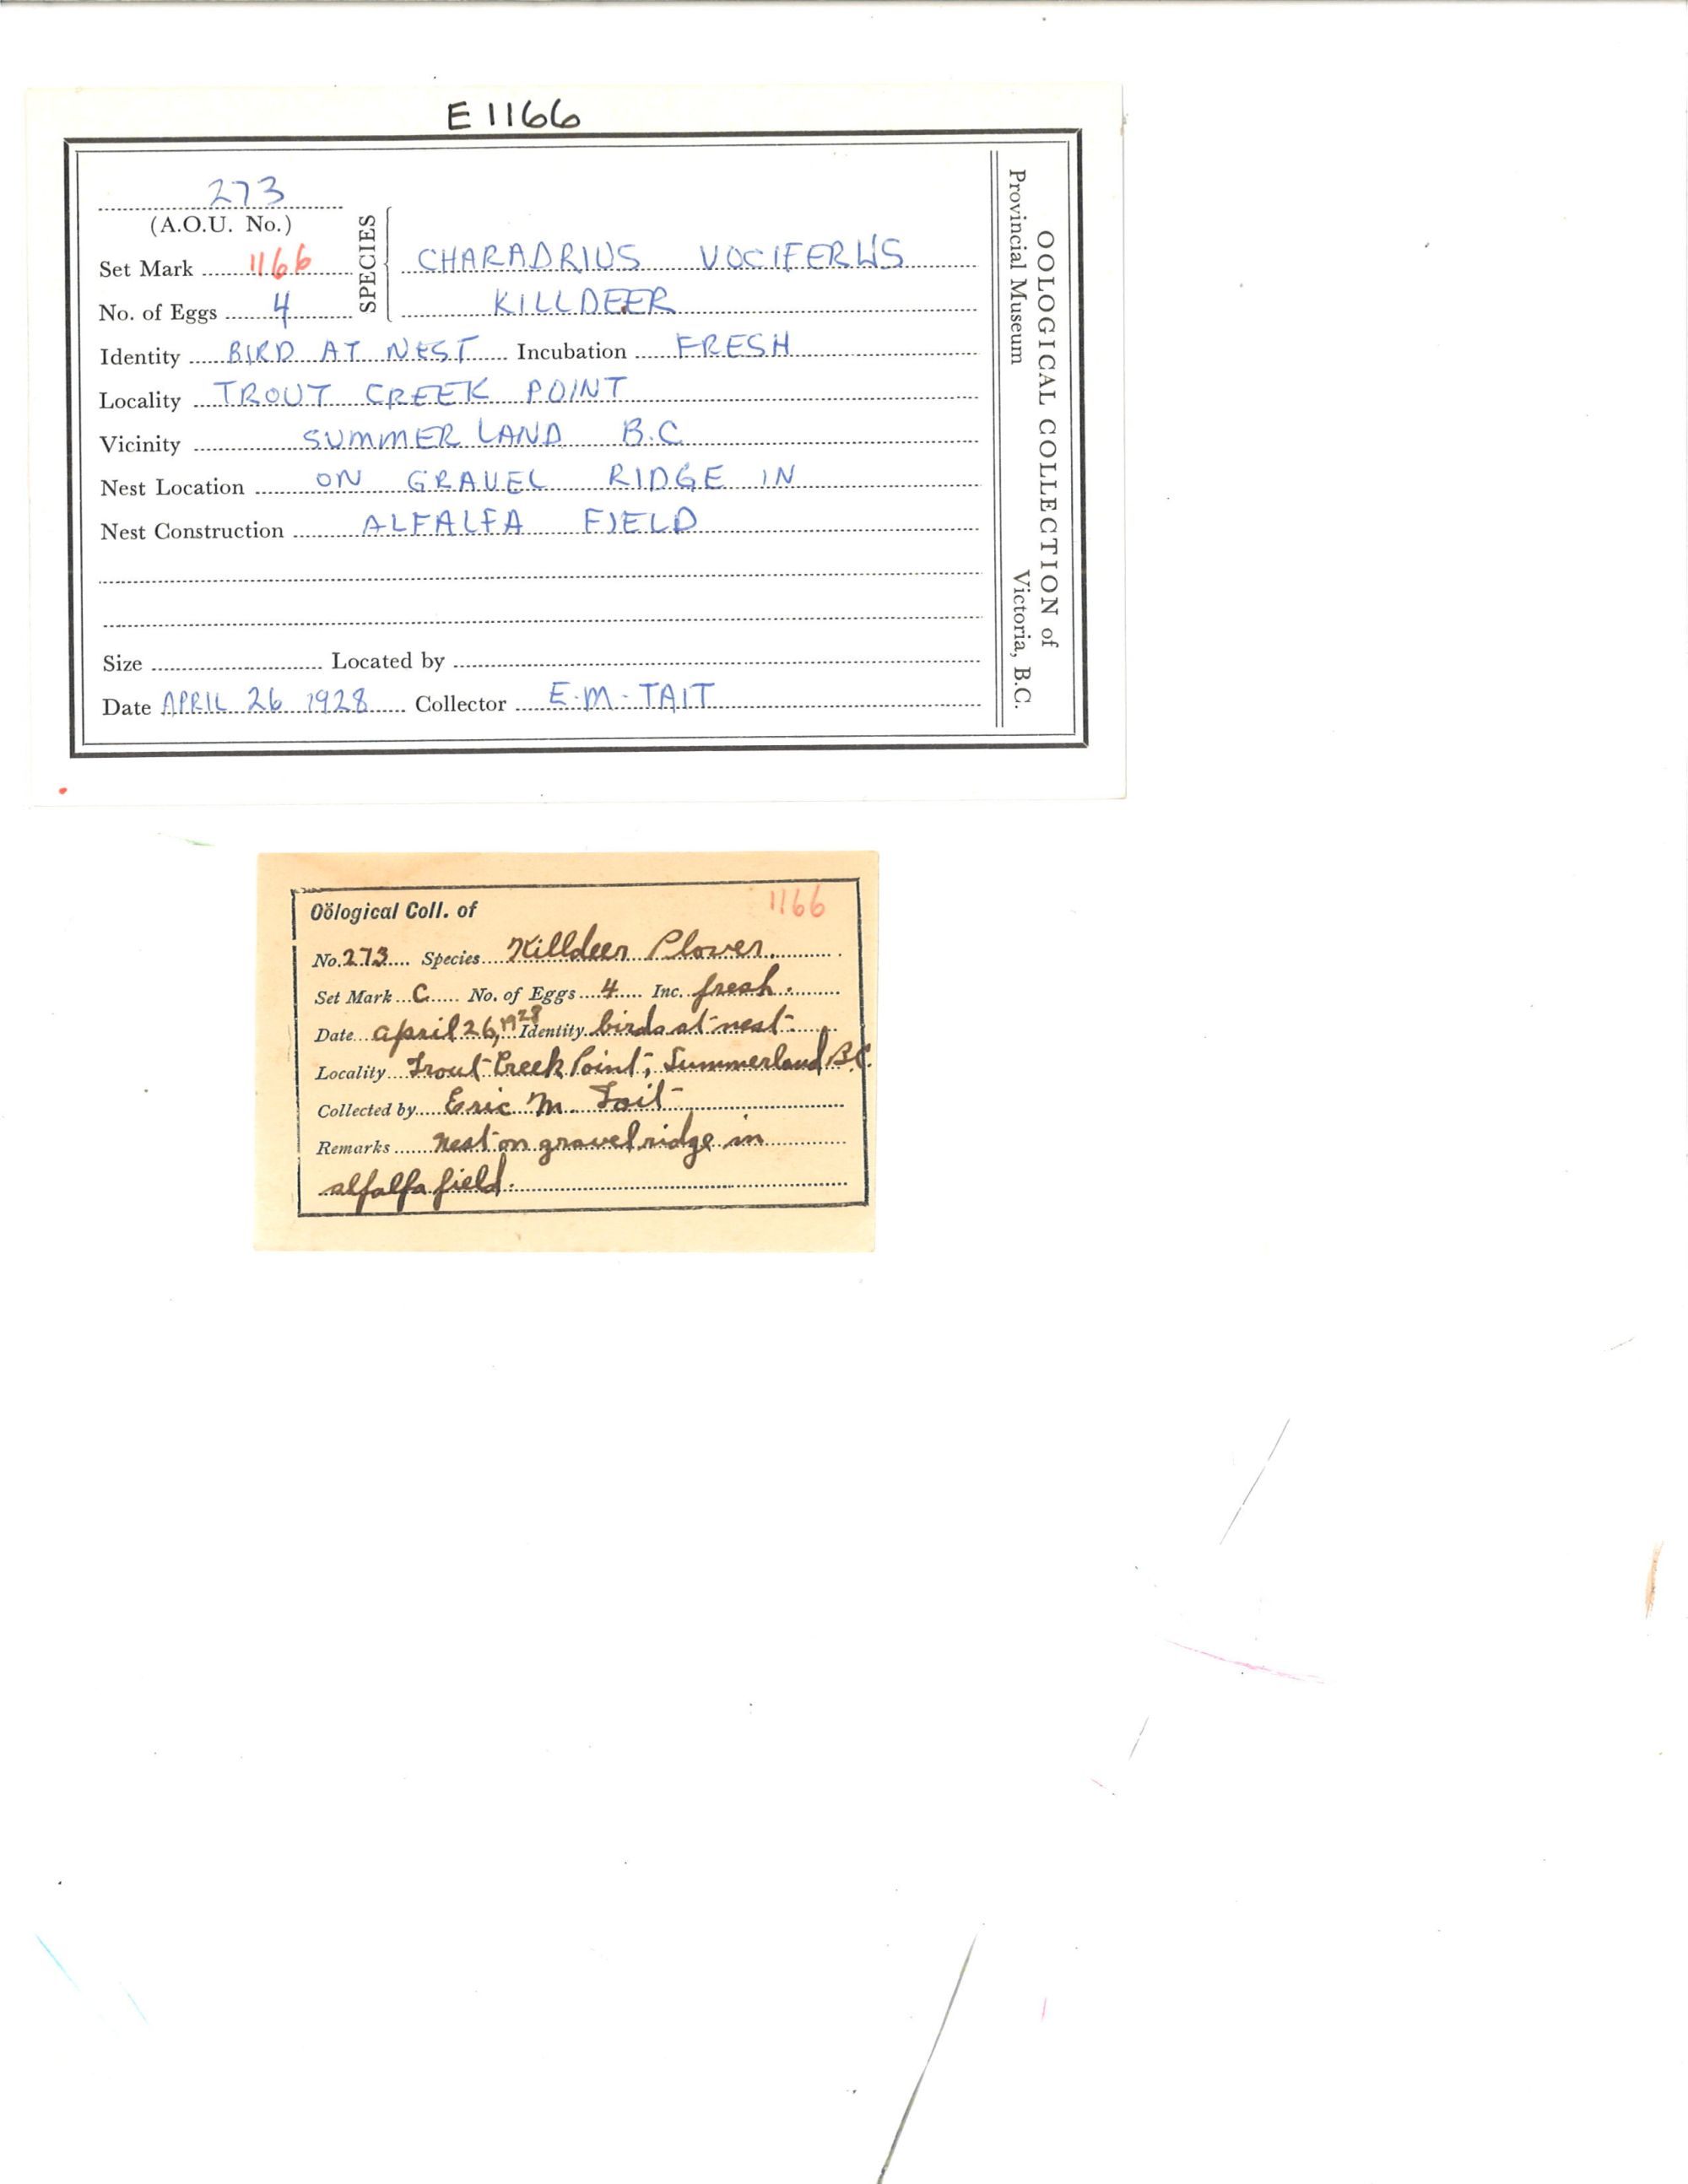 E 1166
273
(A.O.U. No.)
SPECIES
Set Mark 1166
CHARADRIUS VOCIFERUS
No. of Eggs 4
KILLDEER
Identity BIRD AT NEST Incubation FRESH
Locality TROUT CREEK POINT
Vicinity SUMMERLAND B.C
Nest Location ON GRAVEL RIDGE IN
Nest Construction ALFALFA FIELD
Size Located by
Date APRIL 26 1928 Collector E.M. TAIT
OOLOGICAL COLLECTION of
Provincial Museum Victoria, B.C.
1166
Oölogical Coll. of
No. 273 Species Killdeer Plover.
Set Mark C No. of Eggs 4 Inc. fresh.
Date april 26, 1928 Identity birds at nest.
Locality Trout Creek Point, Summerland B.C.
Collected by Eric M. Tait
Remarks nest on gravel ridge in
alfalfa field.